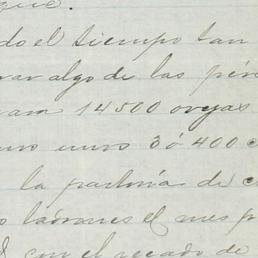 que.
do el tiempo tan
rar algo de las pér
14500 ovejas
unos 3 ó 400 c
la partería de c
ladrones el mes p
con el recado de